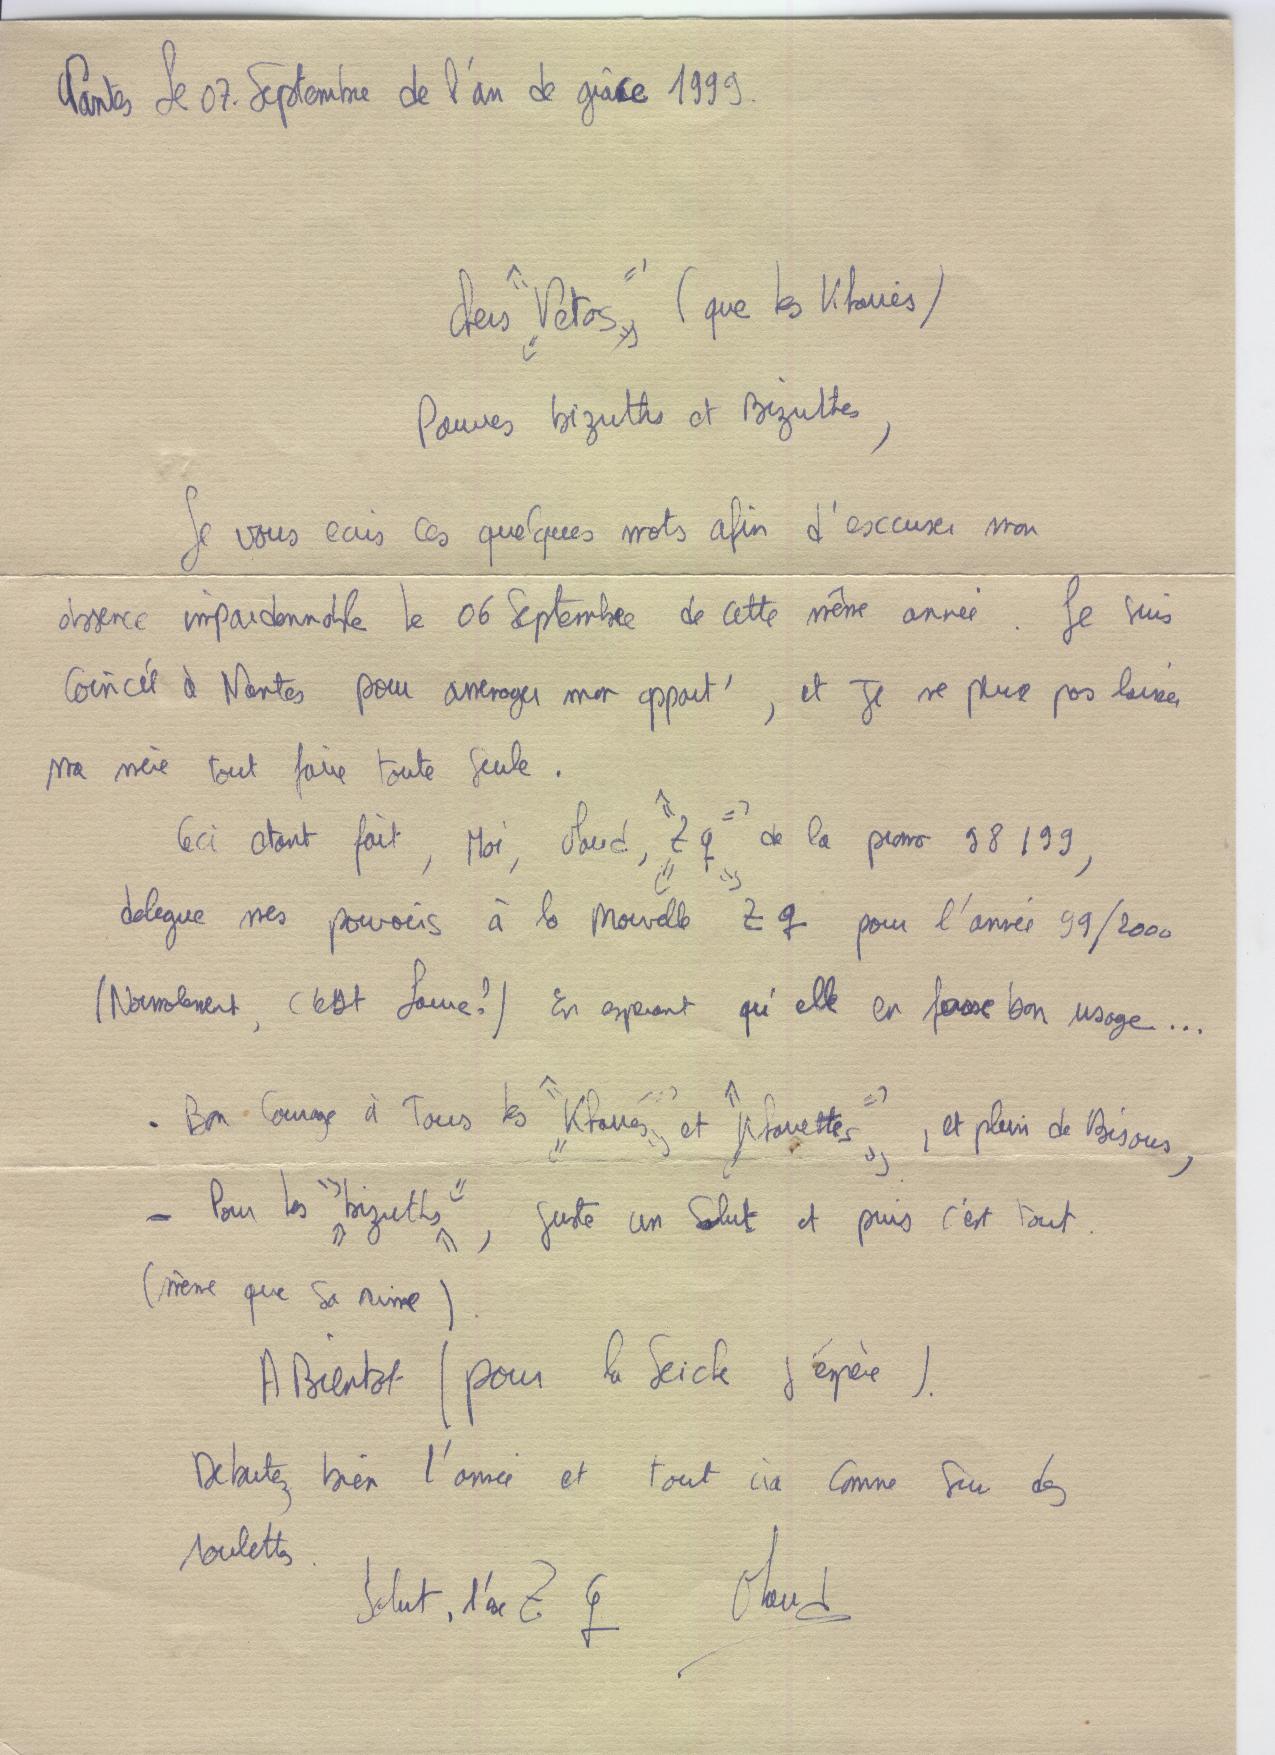 Nantes le 07 Septembre de l'an de grâce 1999.
Chers "Vetos" (que les Kharrés)
Pauvres bizuths et Bizuthes,
Je vous ecris ces quelques mots afin d'excuser mon
absence impardonnable le 06 Septembre de cette même année. Je suis
Coincée à Nantes pour amenager mon appart', et je ne peux pas laisser
ma mère tout faire toute seule.
Ceci etant fait, Moi, Maud, "Z q" de la promo 98/99,
delegue mes pouvoirs à la Nouvelle Z q pour l'année 99/2000
(Normalement, c'est !) En esperant qu'elle en fasse bon usage...
- Bon Courage à Tous les et , et plein de Bisous,
- Pour les "bizuths", juste un Salut et puis c'est tout.
(même que sa rime).
A Bientot (pour la Seiche j'espère).
Debutez bien l'année et tout ira comme sur des
roulettes.
Salut, l'ex Z q Maud